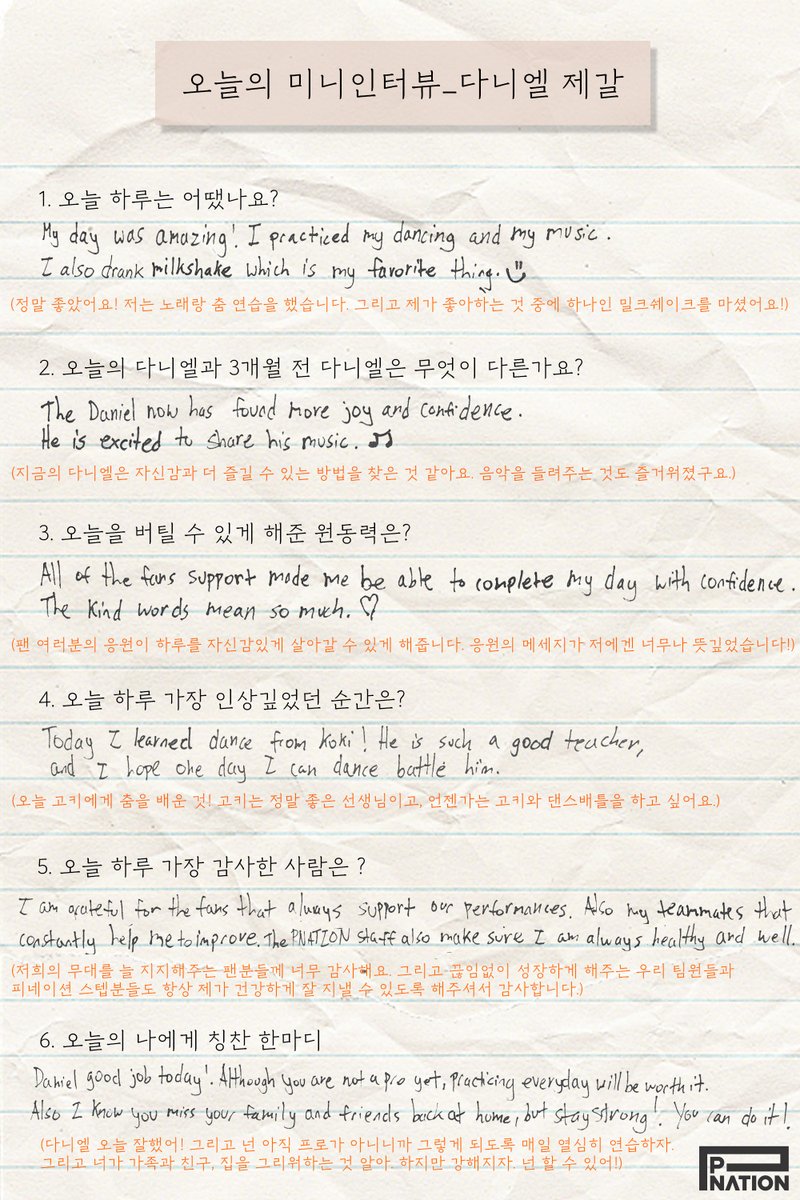 오늘의 미니인터뷰_다니엘 제갈
1. 오늘 하루는 어땠나요?
My day was amazing! I practiced my dancing and my music.
I also drank milkshake which is my favorite thing.
(정말 좋았어요! 저는 노래랑 춤 연습을 했습니다. 그리고 제가 좋아하는 것 중에 하나인 밀크쉐이크를 마셨어요!)
2. 오늘의 다니엘과 3개월 전 다니엘은 무엇이 다른가요?
The Daniel now has found more joy and confidence.
He is excited to share his music. ♫
(지금의 다니엘은 자신감과 더 즐길 수 있는 방법을 찾은 것 같아요. 음악을 들려주는 것도 즐거워졌구요.)
3. 오늘을 버틸 수 있게 해준 원동력은?
All of the fans support made me be able to complete my day with confidence.
The kind words mean so much. ♡
(팬 여러분의 응원이 하루를 자신감있게 살아갈 수 있게 해줍니다. 응원의 메세지가 저에겐 너무나 뜻깊었습니다!)
4. 오늘 하루 가장 인상깊었던 순간은?
Today I learned dance from Koki! He is such a good teacher,
and I hope one day I can dance battle him.
(오늘 고키에게 춤을 배운 것! 고키는 정말 좋은 선생님이고, 언젠가는 고키와 댄스배틀을 하고 싶어요.)
5. 오늘 하루 가장 감사한 사람은 ?
I am grateful for the fans that always support our performances. Also my teammates that
constantly help me to improve. The PNATION staff also make sure I am always healthy and well.
(저희의 무대를 늘 지지해주는 팬분들께 너무 감사해요. 그리고 끊임없이 성장하게 해주는 우리 팀원들과
피네이션 스텝분들도 항상 제가 건강하게 잘 지낼 수 있도록 해주셔서 감사합니다.)
6. 오늘의 나에게 칭찬 한마디
Daniel good job today! Although you are not a pro yet, practicing everyday will be worth it.
Also I know you miss your family and friends back at home, but stay strong! You can do it!
(다니엘 오늘 잘했어! 그리고 넌 아직 프로가 아니니까 그렇게 되도록 매일 열심히 연습하자.
그리고 너가 가족과 친구, 집을 그리워하는 것 알아. 하지만 강해지자. 넌 할 수 있어!)
P NATION